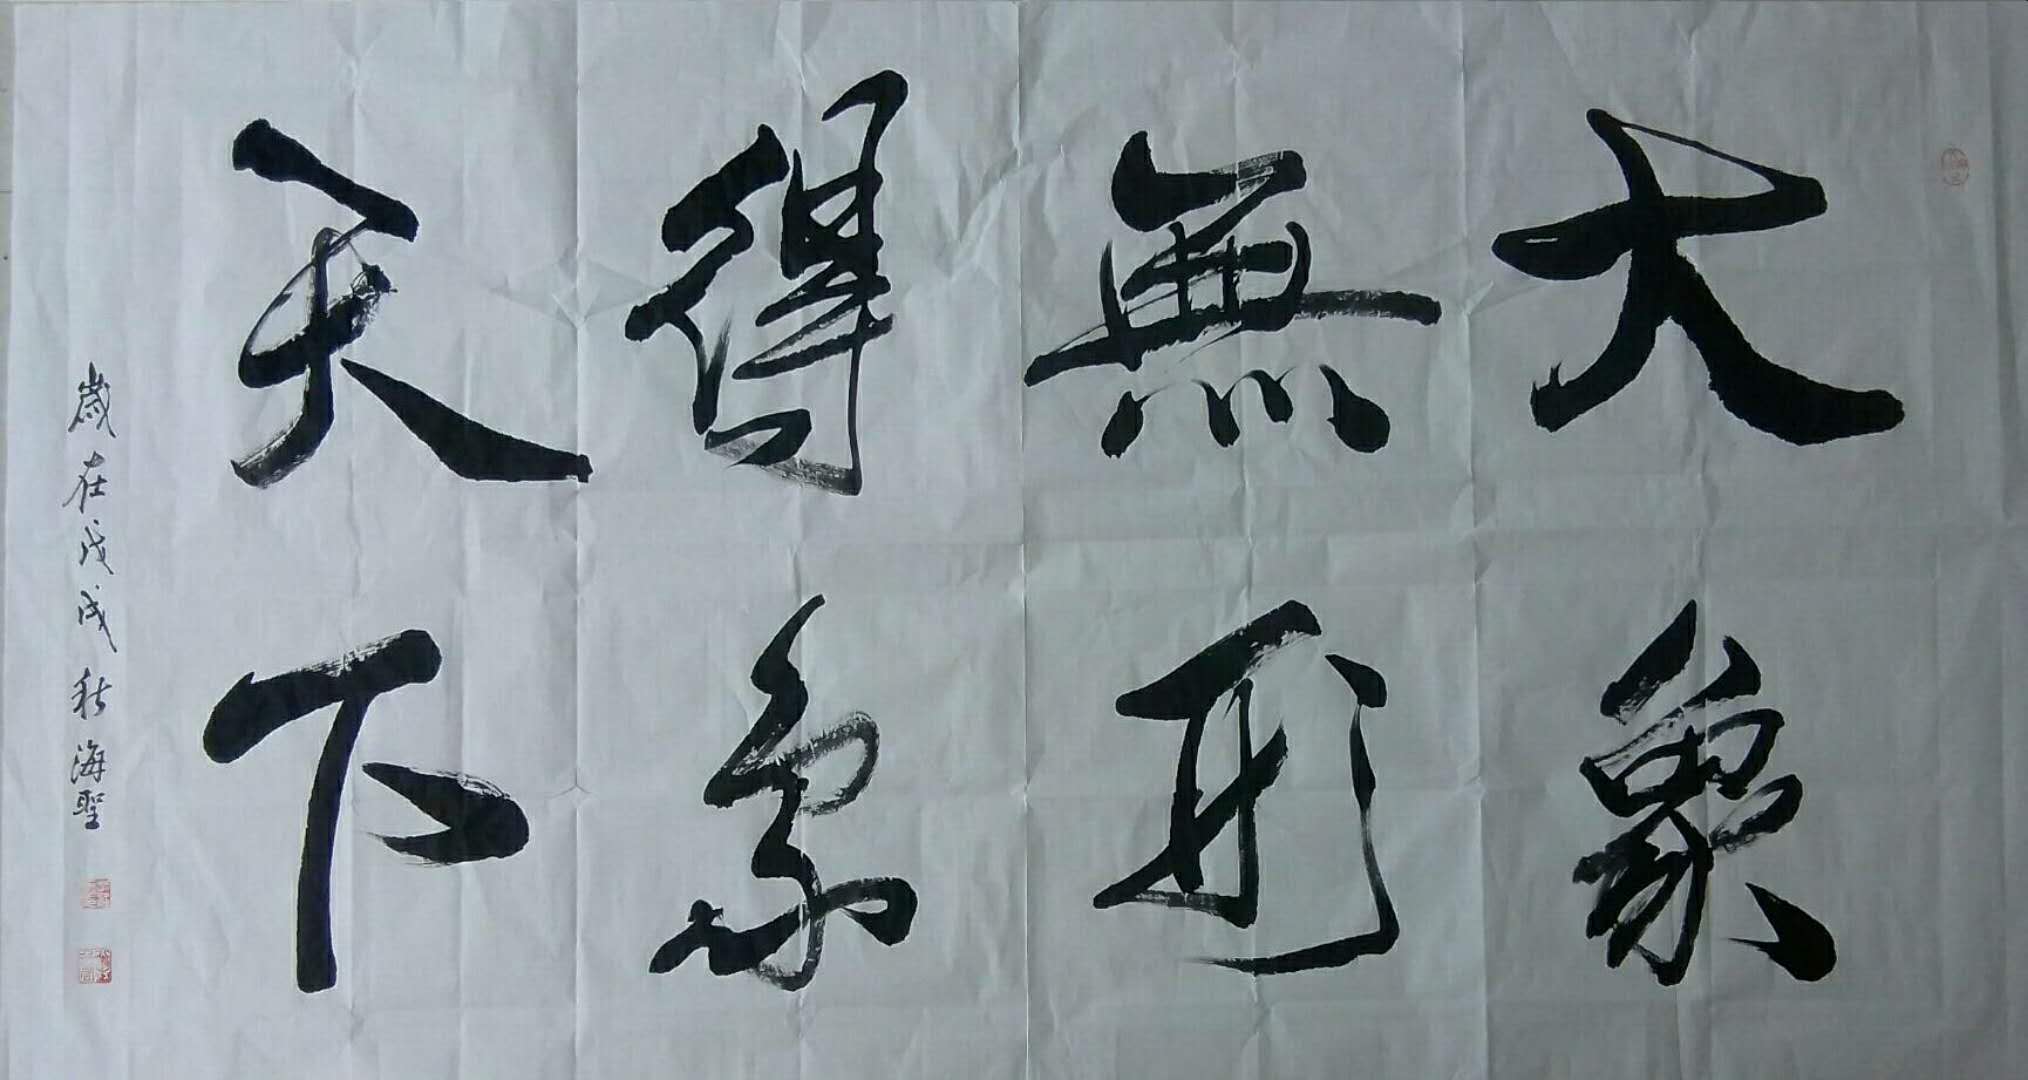 大象
無形
得象
天下
歲在戊戌秋海聖